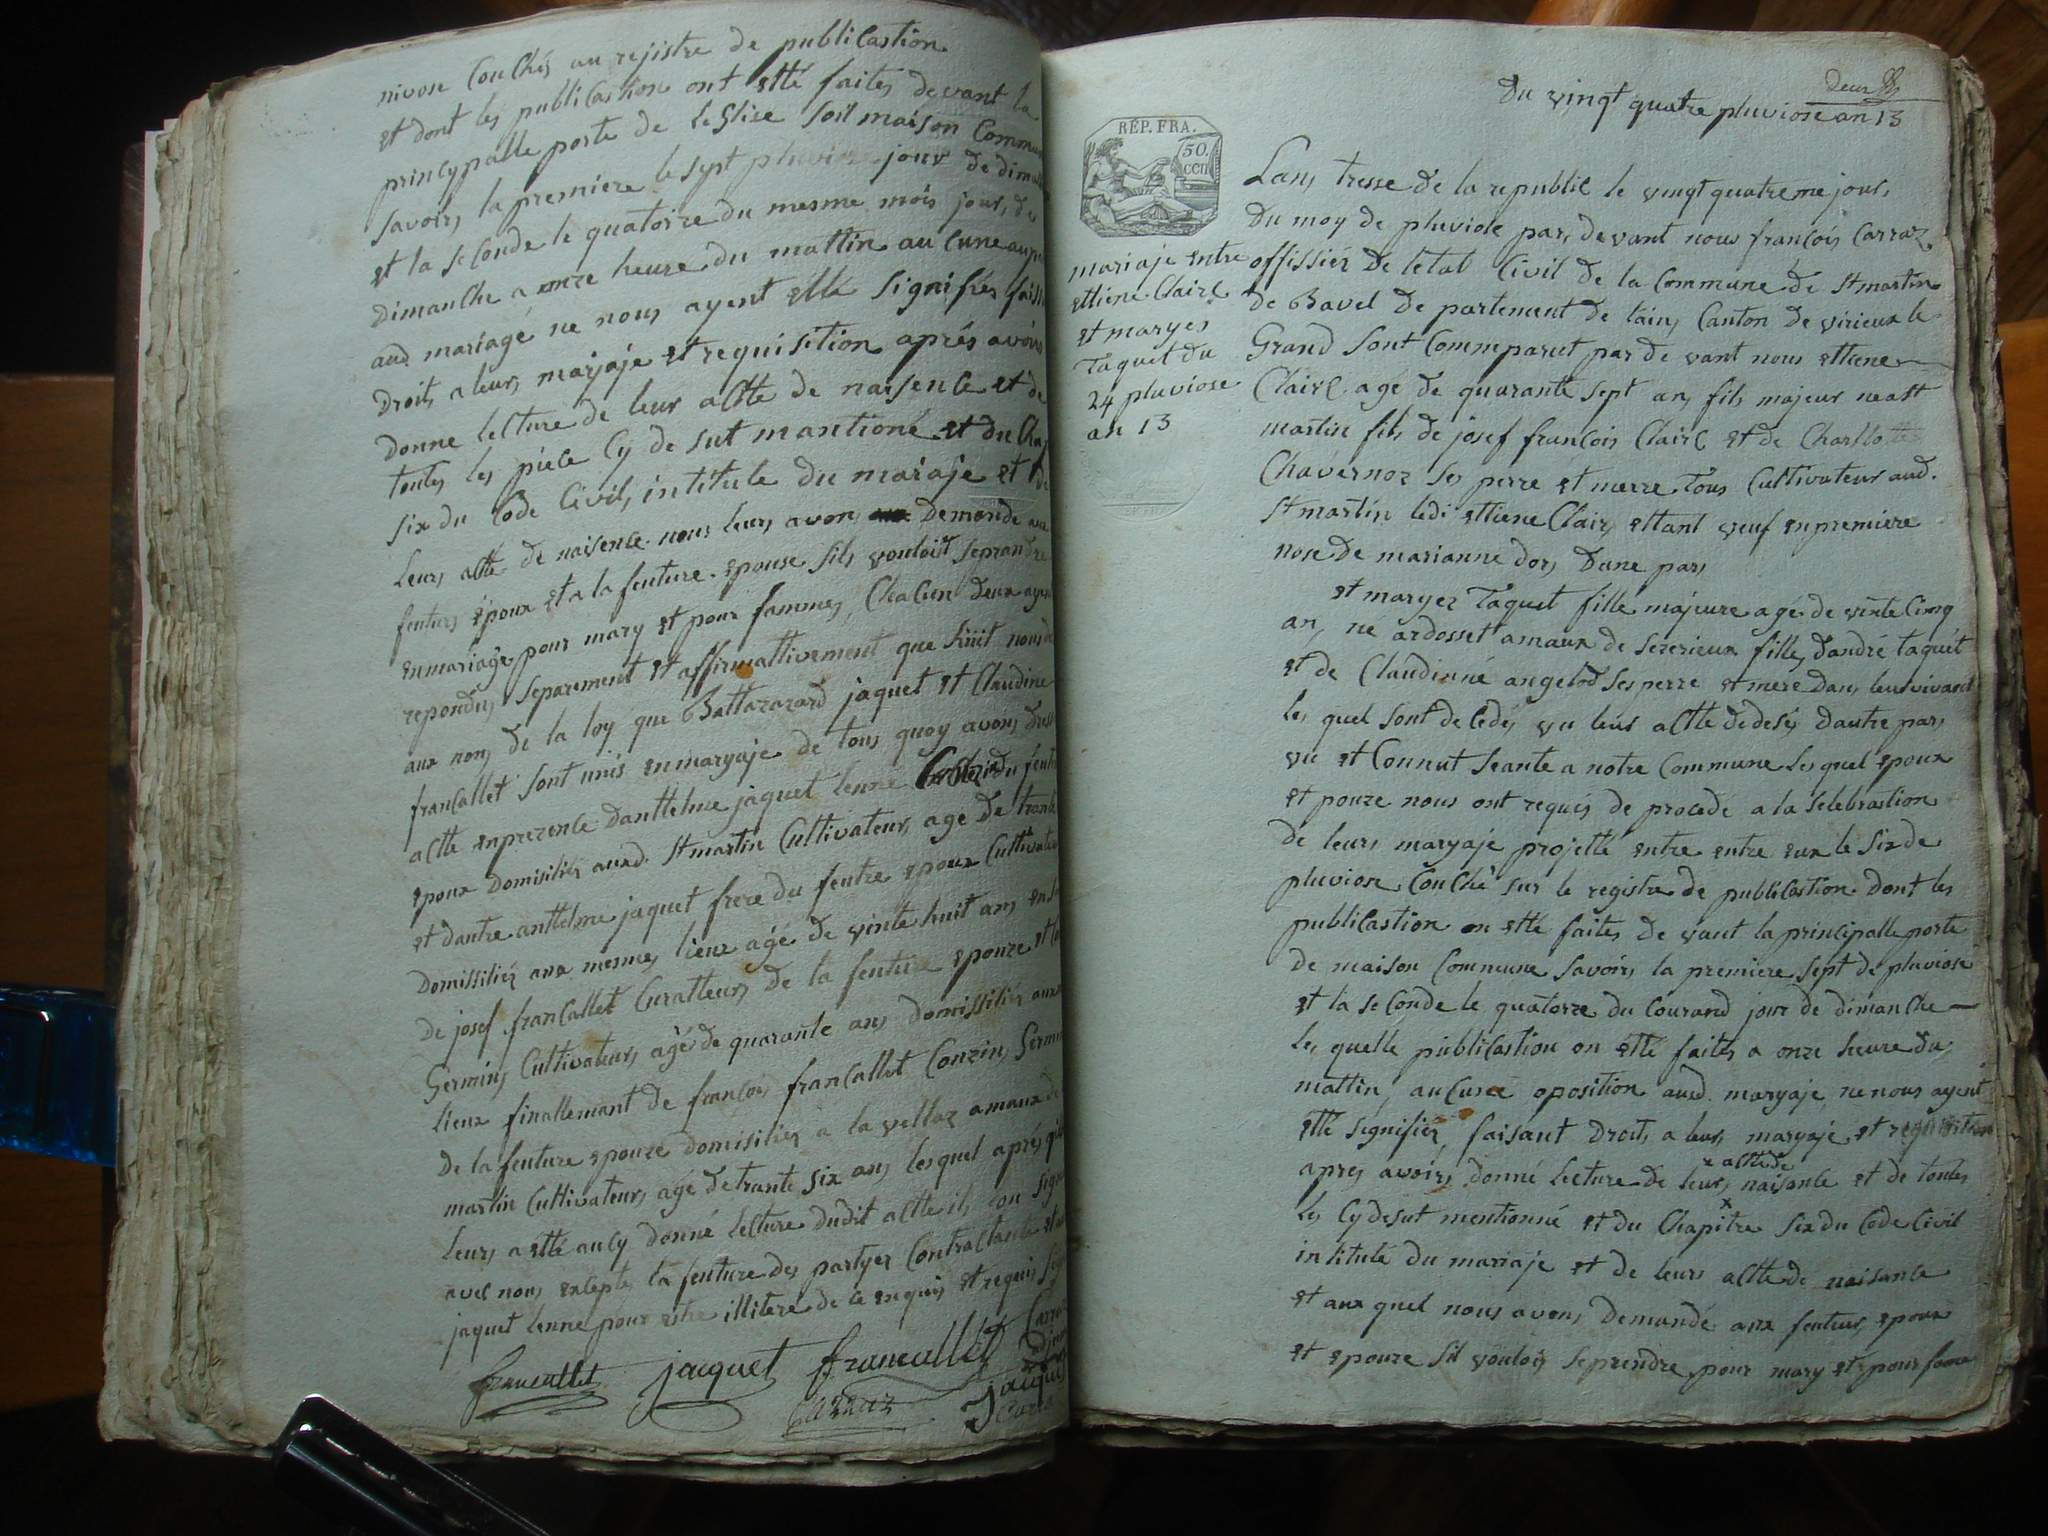 nivose Couchés au rejistre de publicastion
et dont les publicastion ont etté faites devant la
princypalle porte de leglise soit maison Commu
savoirs la premiere le sept pluviose jour de dima
et la seconde le quatorze du mesme mois jour, de
dimanche a onze heure du mattin aucune
aud. mariage ne nous ayent etté signifiés fais
droit, a leurs marjaje et requisition aprés avoirs
donne lecture de leur actte de naisence et de
toutes les piece Cy de sut mantioné et du Cha
six du Code Civil, intitule du mariaje et de
leurs actte de naisence nous leurs avons demende aux
feuturs époux et a la feuture epouse sils vouloist seprandre
enmariage pour mary et pour fammes, Chacun deux ayant
repondus separement et affirmattivement que
aux nons de la loy que Battazard jaquet et Claudine
francallet sont unis enmaryaje de tous quoy avons dres
actte enprezence danttelme jaquet lenne du feut
epoux domisiliés aud. St martin Cultivateurs age de trante
et dautre anttelme jaquet frere du feutre epoux Cultivateu
domissiliés aux mesmes lieux agé de vinte huit ans
de josef francallet Curatteurs de la feuture epouze et
Germins Cultivateurs agé de quarante ans domissiliés aux
lieux finallemant de françois francallet Conzins Germ
de la feuture epouze domisiliés a la vellaz amaux de
martin Cultivateurs agé detrante six ans lesquel aprés q
leurs a etté aucy donné lecture dudit actte ils on signe
avec nous excepte la feuture des partyes Contractante et
jaquet lenne pour estre illiteré de ce enquis et requis sig
francallet jacquet francallet Carra
Carraz jacque
deux
Du vingt quatre pluviose an 13
RÉP. FRA.
50.
cen
mariaje entre
ettiene Claire
et maryes
Taquet du
24 pluviose
an 13
Lans tresse de la republic le vingt quatreme jour,
du moy de pluviose pars devant nous françois Carraz
offissiér de letat Civil de la Commune de St martin
de Bavel de partement de lain, Canton de virieux le
Grand sont Commparut par de vant nous ettiene
Claire agé de quarante sept ans fils majeur ne a St
martin fils de josef françois Claire et de Charllotte
Chavernoz ses perre et merre tous Cultivateur aud.
St martin ledi ettiene Clair, ettant veuf enpremiere
nose de marianne dors dune pars
et maryes Taquet fille majeure agé de vinte Cinq
an, ne ardosset amaux de sezerieux fille dandré taquét
et de Claudinné angelod ses perre et mere dans leur vivant
les quel sont de cedés vu leurs actte dedesés dautre pars
vu et Connut seante a notre Commune lesquel epoux
et pouze nous ont requis de procede a la selebrastion
de leurs maryaje projetté entre entre eux le six de
pluviose Couché sur le registre de publicastion dont les
publicastion on etté faites de vant la principalle porte
de maison Commune savoirs la premiere sept de pluviose
et la seconde le quatorze du Courand jour de dimanche
les quelle publicastion on etté faites a onze heure du
mattin, aucune oposition aud. maryaje ne nous ayent
etté signifiés, faisant droit, a leurs maryaje et requisition
apres avoirs donné lecture de leurs x acttede naisance et de toutes
les Cydesut mentionné et du Chapitre six du Code Civil
intitulé du mariaje et de leurs actte de naisance
et aux quel nous avons demandé aux feuturs epoux
et epouze sil vouloirs seprendre pour mary et epour fame